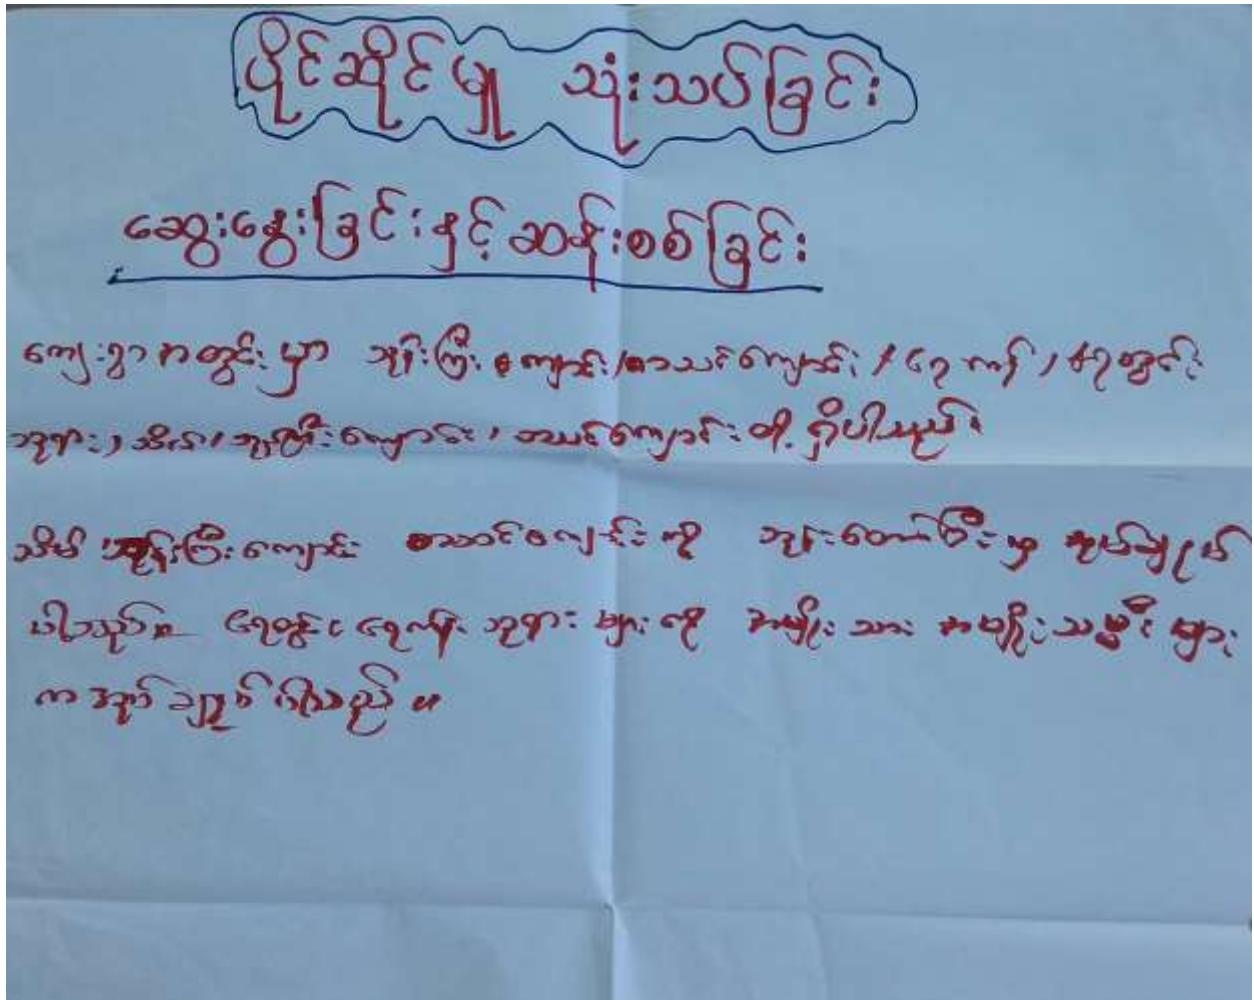 ပိုင်ဆိုင်မှု သုံးသပ်ခြင်း
ဆွေးနွေးခြင်းနှင့်ဆန်းစစ်ခြင်း
ကျေးရွာအတွင်းမှာ ဘုန်းကြီးကျောင်း၊စာသင်ကျောင်း၊ ရေကန်၊ ရေတွင်း
ဘုရား၊သိမ်၊ဘုန်းကြီးကျောင်း၊ စာသင်ကျောင်းတို့ရှိပါသည်။
သိမ်၊ဘုန်းကြီးကျောင်း စာသင်ကျောင်းကို ဘုန်းတော်ကြီးမှ အုပ်ချုပ်
ပါသည်။ ရေတွင်း၊ ရေကန်၊ ဘုရားများကို အမျိုးသား အမျိုးသမီးများ
က အုပ်ချုပ်ပါသည်။